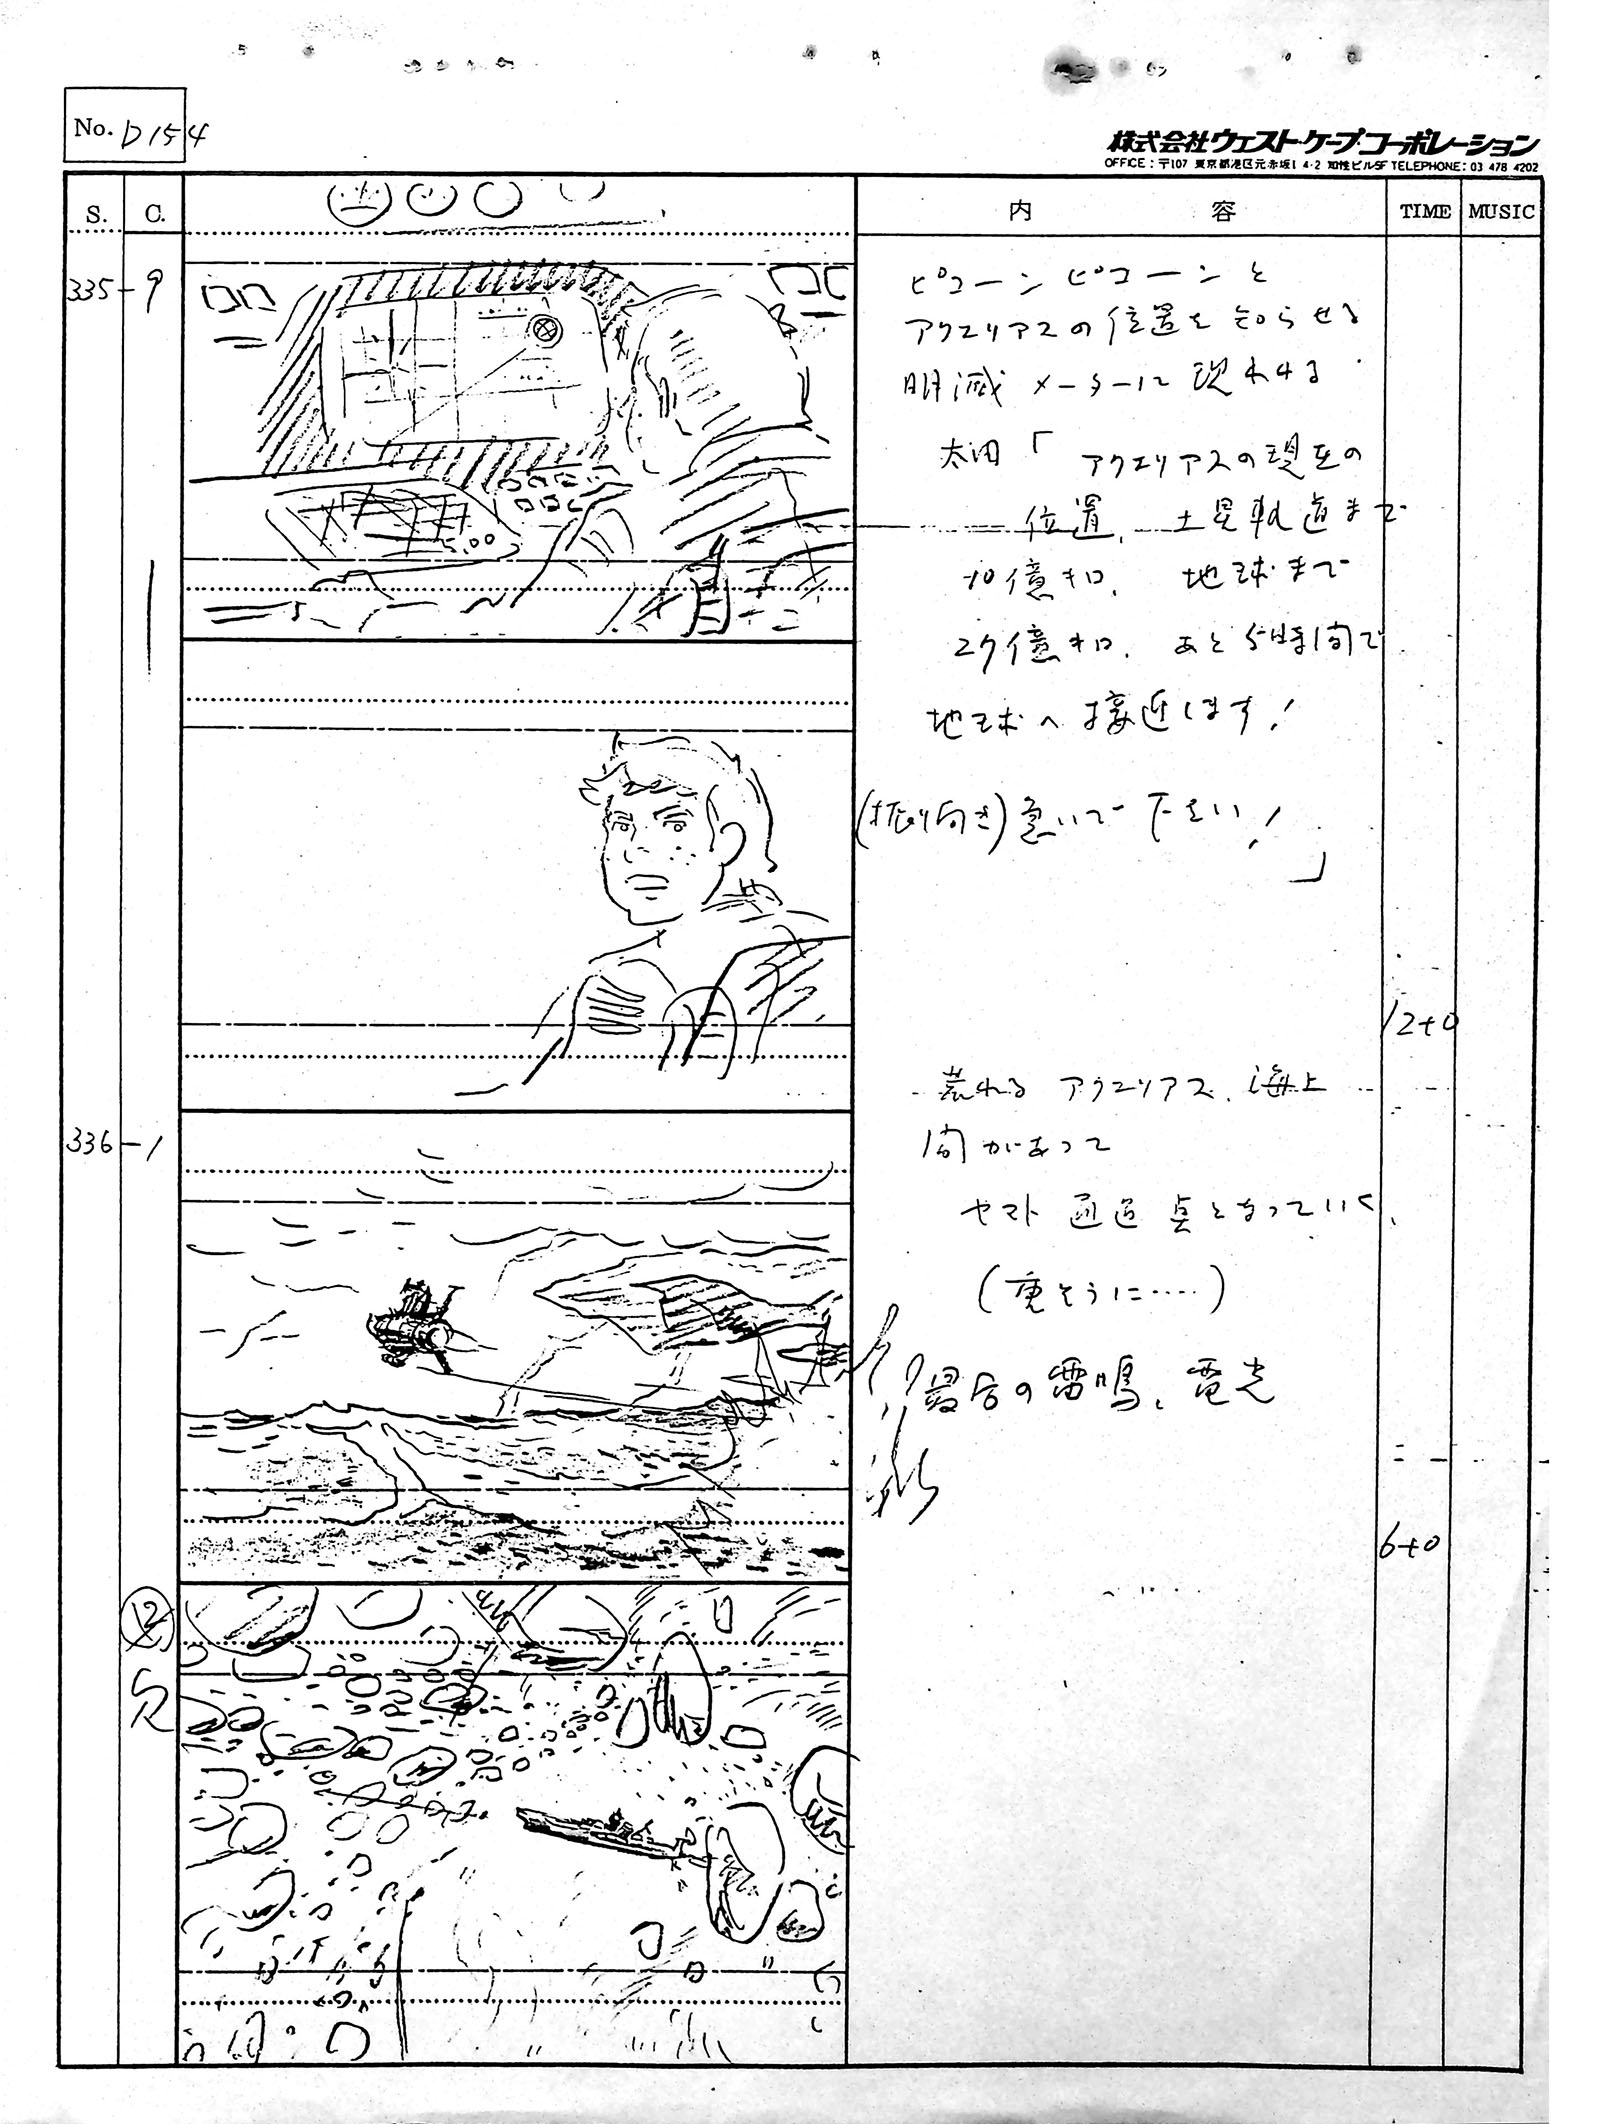 No. D154
株式会社ウェスト・ケープ・コーポレーション
OFFICE：〒107 東京都港区元赤坂1 4-2 知性ビル5F TELEPHONE：03 478 4202
S. C. 内 容 TIME MUSIC
335-9
ピコーン ピコーンと
アクエリアスの位置を知らせる
明滅 メーターに現われる
太田「アクエリアスの現在の
位置、土星軌道まで
10億キロ、地球まで
27億キロ、あと5時間で
地球へ接近します!
(振り向き)急いで下さい!
」
5,00
12+0
336-1
荒れるアクエリアス、海上
間があって
ヤマト 通過 点となっていく、
(重そうに……)
最后の雷鳴、電光
6+0
欠